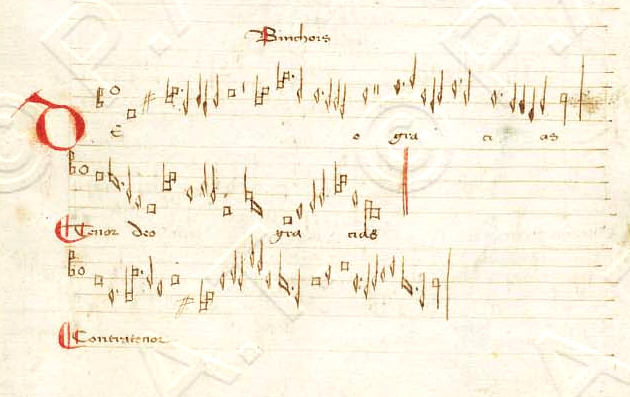 Binchois
DE o gra ci as
Tenor deo gra cias
Contratenor